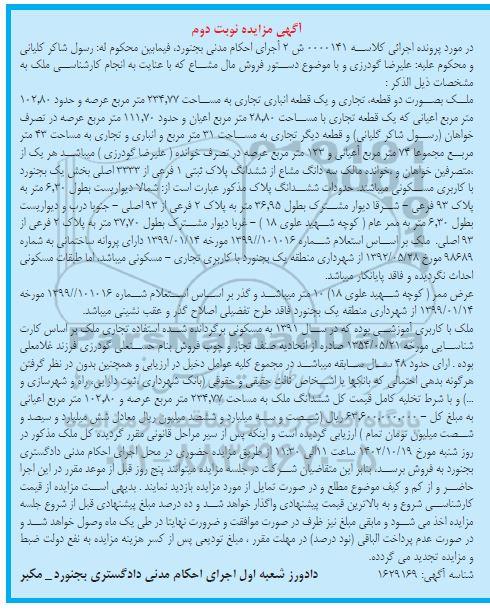 آگهی مزایده نوبت دوم
در مورد پرونده اجرائی کلاسه ۰۰۰۰۱۴۱ ش ۲ اجرای احکام مدنی بجنورد، فیمابین محکوم له: رسول شاکر گلیانی
و محکوم علیه: علیرضا گودرزی و با موضوع دستور فروش مال مشاع که با عنایت به انجام کارشناسی ملک به
مشخصات ذیل الذکر :
ملک بصورت دو قطعه، تجاری و یک قطعه انباری تجاری به مساحت ۲۳۴,۷۷ متر مربع عرصه و حدود ۱۰۲,۸۰
متر مربع اعیانی که یک قطعه تجاری با مساحت ۲۸,۸۰ متر مربع اعیان و حدود ۱۱۱,۷۰ متر مربع عرصه در تصرف
خواهان (رسول شاکر گلیانی) و قطعه دیگر تجاری به مساحت ۳۱ متر مربع و انباری و تجاری به مساحت ۴۳ متر
مربع مجموعا ۷۴ متر مربع اعیانی و ۱۲۳ متر مربع عرصه در تصرف خوانده ( علیرضا گودرزی ) میباشد هر یک از
متصرفین خواهان و خوانده مالک سه دانگ مشاع از ششدانگ پلاک ثبتی ۱ فرعی از ۳۳۳۳ اصلی بخش یک بجنورد
با کاربری مسکونی میباشند حدودات ششدانگ پلاک مذکور عبارت است از: شمالا دیواریست بطول ۶,۳۰ متر به
پلاک ۹۳ فرعی – شرقا دیوار مشترک بطول ۳۶,۹۵ متر به پلاک ۲ فرعی از ۹۳ اصلی – جنوبا درب و دیواریست
بطول ۶,۳۰ متر به ممر عام ( کوچه شهید علوی ۱۸ ) – غربا دیوار مشترک بطول ۳۷,۷۰ متر به پلاک ۲ فرعی از
۹۳ اصلی. ملک بر اساس استعلام شماره ۱۳۹۹/۱۰۱۰۱۶ مورخه ۱۳۹۹/۰۱/۱۴ دارای پروانه ساختمانی به شماره
۹۸۶۸۹ مورخ ۱۳۹۲/۰۵/۲۸ از شهرداری منطقه یک بجنورد با کاربری تجاری – مسکونی میباشد، اما طبقات مسکونی
احداث نگردیده و فاقد پایانکار میباشد.
عرض ممر ( کوچه شهید علوی ۱۸) ۱۰ متر میباشد و گذر بر اساس استعلام شماره ۱۳۹۹/۱۰۱۰۱۶ مورخه
۱۳۹۹/۰۱/۱۴ از شهرداری منطقه یک بجنورد فاقد طرح تفصیلی اصلاح گذر و عقب نشینی میباشد.
ملک با کاربری آموزشی بوده که در سال ۱۳۹۱ به مسکونی برگردانده شده استفاده تجاری ملک بر اساس کارت
شناسایی مورخه ۱۳۵۴/۰۵/۲۱ صادره از اتحادیه صنف نجار و چوب فروش بنام حسنعلی گودرزی فرزند غلامعلی
بوده . ارای حدود ۴۸ سال سابقه میباشد در مجموع کلیه عوامل دخیل در ارزیابی و همچنین بدون در نظر گرفتن
هرگونه بدهی احتمالی که بانکها یا اشخاص ثالث حقیقی و حقوقی (بانک شهرداری ،ثبت دارایی راه و شهرسازی و
...) و با شرط تخلیه کامل قیمت کل ششدانگ ملک به مساحت ۲۳۴,۷۷ متر مربع عرصه و ۱۰۲,۸۰ متر مربع اعیانی
به مبلغ کل – ۶۳,۶۰۰,۰۰۰,۰۰۰ ریال (شصت و سه میلیارد و ششصد میلیون ریال معادل شش میلیارد و سیصد و
شصت میلیون تومان تمام ) ارزیابی گردیده است و اینکه پس از سیر مراحل قانونی مقرر گردیده کل ملک مذکور در
روز شنبه مورخ ۱۴۰۲/۱۰/۱۹ ساعت ۱۱الی ۱۱:۳۰ از طریق مزایده حضوری در محل اجرای احکام مدنی دادگستری
بجنورد به فروش برسد، بنابر این متقاضیان شرکت در جلسه مزایده میتوانند پنج روز قبل از موعد مقرر در این اجرا
حاضر و از کم و کیف موضوع مطلع و در صورت تمایل از مورد مزایده بازدید نمایند . بدیهی است مزایده از قیمت
کارشناسی شروع و به بالاترین قیمت پیشنهادی واگذار خواهد شد و ده درصد مبلغ پیشنهادی قبل از شروع جلسه
مزایده اخذ می شود و مابقی مبلغ نیز ظرف در صورت موافقت و ضرورت نهایتا در طی یک ماه وصول خواهد شد و
در صورت عدم پرداخت الباقی (نود درصد) در مهلت مقرر ، مبلغ تودیعی پس از کسر هزینه مزایده به نفع دولت ضبط
و مزایده تجدید می گردده.
شناسه آگهی: ۱۶۲۹۱۶۹ دادورز شعبه اول اجرای احکام مدنی دادگستری بجنورد_ مکبر